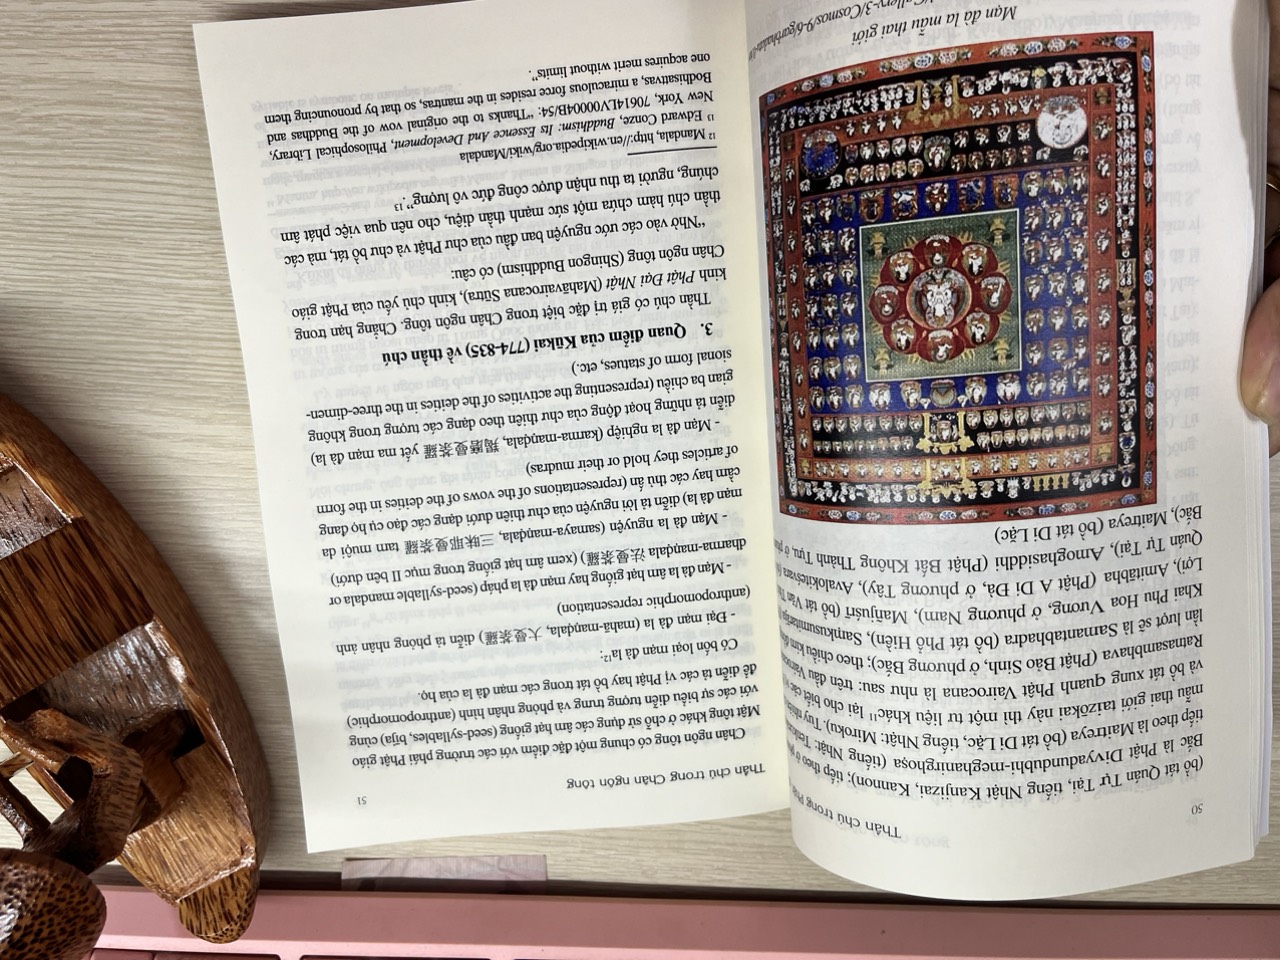 50
Thần chú trong
(bồ tát Quán Tự Tại, tiếng Nhật Kanjizai, Kannon); tiếp theo ở
Bắc là Phật Divyadundubhi-meghanirghoṣa (tiếng Nhật:
tiếp theo là Maitreya (bồ tát Di Lặc, tiếng Nhật: Miroku). Tuy
mẫu thai giới taizōkai này thì một tư liệu khác¹¹ lại cho biết các vị
và bồ tát xung quanh Phật Vairocana là như sau: trên đầu
Ratnasambhava (Phật Bảo Sinh, ở phương Bắc); theo chiều kim
lần lượt sẽ là Samantabhadra (bồ tát Phổ Hiền),
Khai Phu Hoa Vương, ở phương Nam), Mañjuśrī (bồ tát Văn
Lợi), Amitābha (Phật A Di Đà, ở phương Tây),
Quán Tự Tại), Amoghasiddhi (Phật Bất Không Thành Tựu, ở
Bắc), Maitreya (bồ tát Di Lặc)
Mạn đà la mẫu thai giới
51
Thần chú trong Chân ngôn tông
Chân ngôn tông có chung một đặc điểm với các trường phái Phật giáo
Mật tông khác ở chỗ sử dụng các âm hạt giống (seed-syllables, bīja) cùng
với các sự biểu diễn tượng trưng và phỏng nhân hình (anthropomorphic)
để diễn tả các vị Phật hay bồ tát trong các mạn đà la của họ.
Có bốn loại mạn đà la¹²:
- Đại mạn đà la (mahā-maṇḍala, 大曼荼羅) diễn tả phỏng nhân ảnh
(anthropomorphic representation)
- Mạn đà la âm hạt giống hay mạn đà la pháp (seed-syllable mandala or
dharma-maṇḍala 法曼荼羅) (xem âm hạt giống trong mục II bên dưới)
- Mạn đà la nguyện (samaya-maṇḍala, 三昧耶曼荼羅 tam muội da
mạn đà la) diễn tả lời nguyện của chư thiên dưới dạng các đạo cụ họ đang
cầm hay các thủ ấn (representations of the vows of the deities in the form
of articles they hold or their mudras)
- Mạn đà la nghiệp (karma-maṇḍala, 羯磨曼荼羅 yết ma mạn đà la)
diễn tả những hoạt động của chư thiên theo dạng các tượng trong không
gian ba chiều (representing the activities of the deities in the three-dimen-
sional form of statues, etc.)
3. Quan điểm của Kūkai (774-835) về thần chú
Thần chú có giá trị đặc biệt trong Chân ngôn tông. Chẳng hạn trong
kinh Phật Đại Nhật (Mahāvairocana Sūtra), kinh chủ yếu của Phật giáo
Chân ngôn tông (Shingon Buddhism) có câu:
“Nhờ vào các ước nguyện ban đầu của chư Phật và chư bồ tát, mà các
thần chú hàm chứa một sức mạnh thần diệu, cho nên qua việc phát âm
chúng, người ta thu nhận được công đức vô lượng”.¹³
¹² Mandala, http://en.wikipedia.org/wiki/Mandala
¹³ Edward Conze, Buddhism: Its Essence And Development, Philosophical Library,
New York, 706141LV00004B/54: “Thanks to the original vow of the Buddhas and
Bodhisattvas, a miraculous force resides in the mantras, so that by pronouncing them
one acquires merit without limits”.